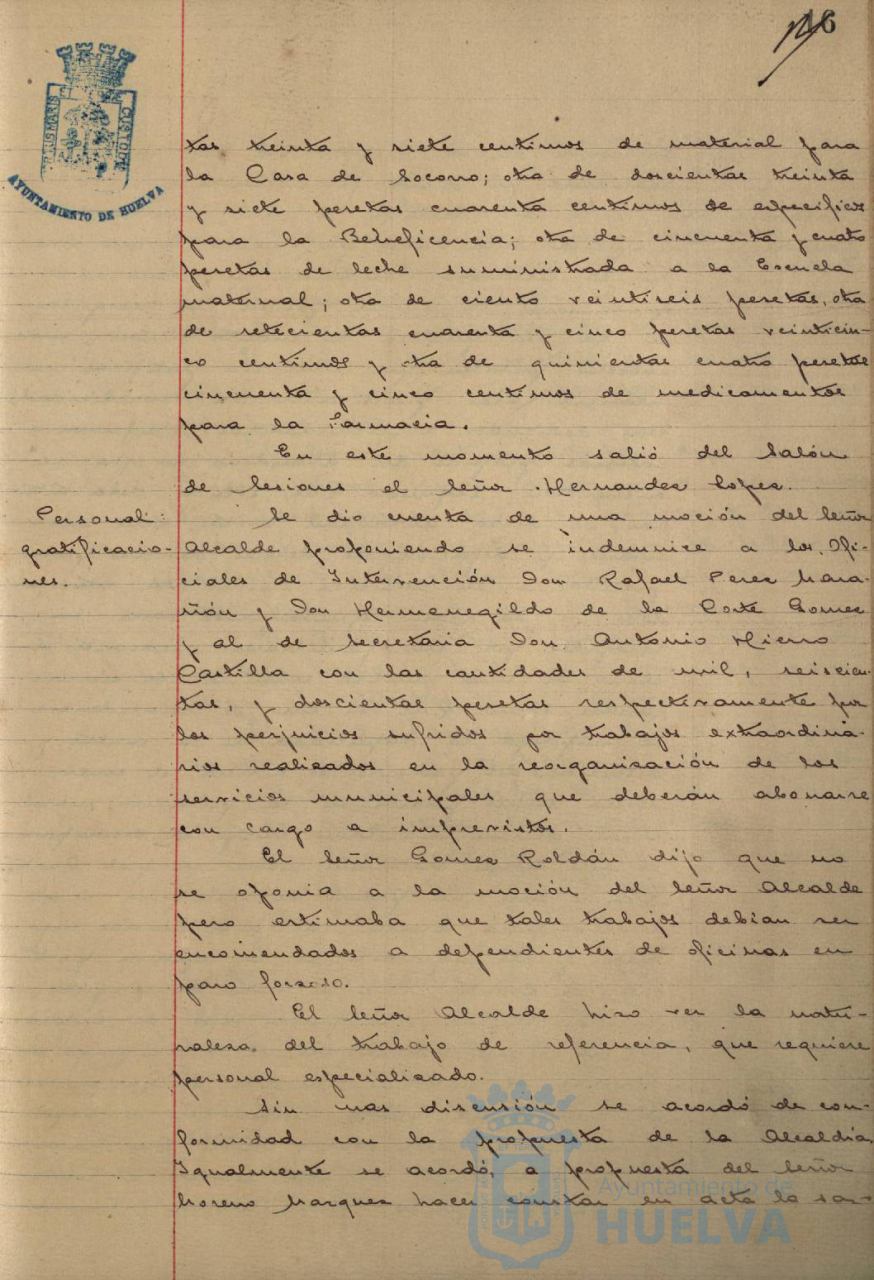 146
PORTUS MARIS
CUSTODIA
AYUNTAMIENTO DE HUELVA
tas treinta y siete centimos de material para
la Casa de Socorro; otra de doscientas treinta
y siete pesetas cuarenta centimos de especificos
para la Beneficencia; otra de cincuenta y cuatro
pesetas de leche suministrada a la Escuela
maternal; otra de ciento veintiseis pesetas, otra
de setecientas cuarenta y cinco pesetas veinticin-
co centimos y otra de quinientas cuatro pesetas
cincuenta y cinco centimos de medicamentos
para la Farmacia.
En este momento salió del Salón
de Sesiones el Señor Hernandez Lopez.
Personal:
gratificacio-
nes.
Se dio cuenta de una moción del Señor
Alcalde proponiendo se indemnice a los Ofi-
ciales de Intervención Don Rafael Perez Mara-
ñón y Don Hermenegildo de la Corte Gomez
y al de Secretaria Don Antonio Hierro
Castilla con las cantidades de mil, seiscien-
tas, y doscientas pesetas respectivamente por
los perjuicios sufridos por trabajos extraordina-
rios realizados en la reorganización de los
servicios municipales que deberán abonarse
con cargo a imprevistos.
El Señor Gomez Roldán dijo que no
se oponia a la moción del Señor Alcalde
pero estimaba que tales trabajos debian ser
encomendados a dependientes de oficinas en
paro forzoso.
El Señor Alcalde hizo ver la natu-
raleza del trabajo de referencia, que requiere
personal especializado.
Sin mas discusión se acordó de con-
formidad con la propuesta de la Alcaldía.
Igualmente se acordó, a propuesta del Señor
Moreno Marquez hacer constar en acta la sa-
Ayuntamiento de
HUELVA